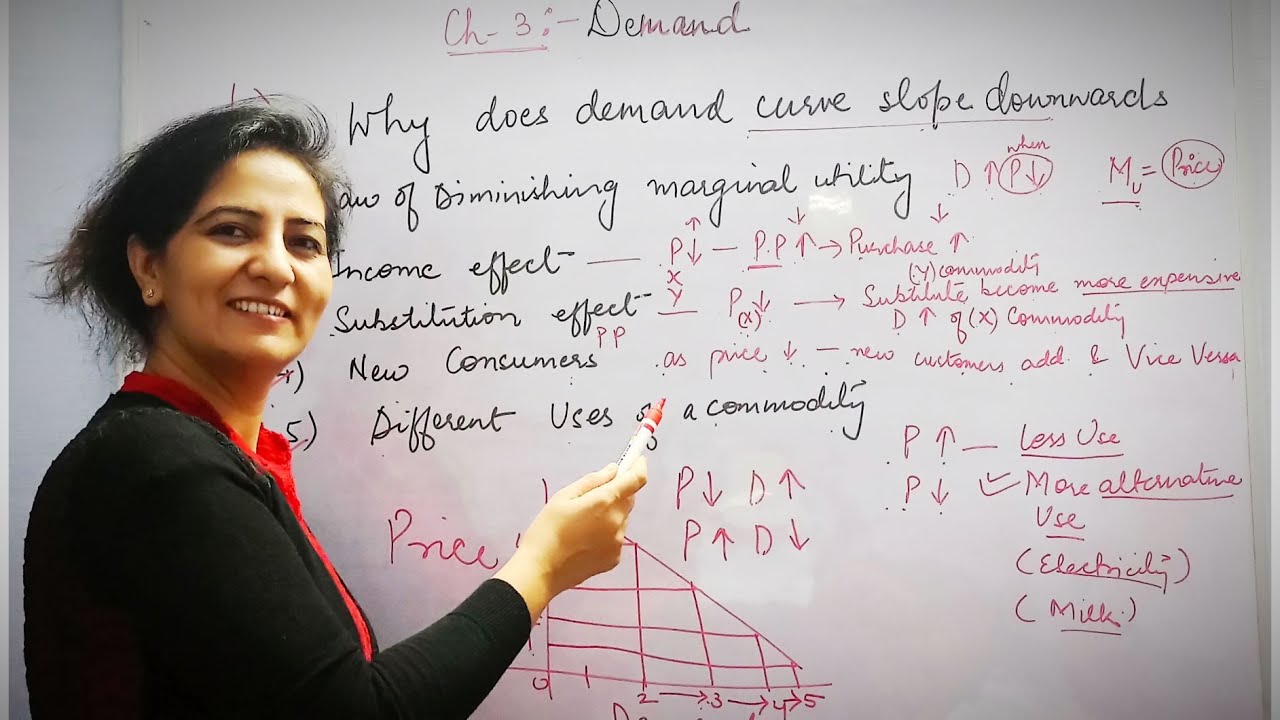 Ch-3:- Demand
1)
Why does demand curve slope downwards
aw of Diminishing marginal utility D ↑ when P↓ Mu = Price
Income effect — P↓ — P.P ↑ → Purchase ↑
X (Y) commodity
Substitution effect — Y P(x)↓ → Subtitute become more expensive
PP D ↑ of (X) Commodity
4) New Consumers as price ↓ — new customers add. & Vice Versa
5) Different Uses of a commodity
P ↑ — Less Use
P ↓ More alternative
Use
(Electricity)
(Milk)
P↓ D↑
P↑ D↓
Price
0 2 → 3 → 4 → 5